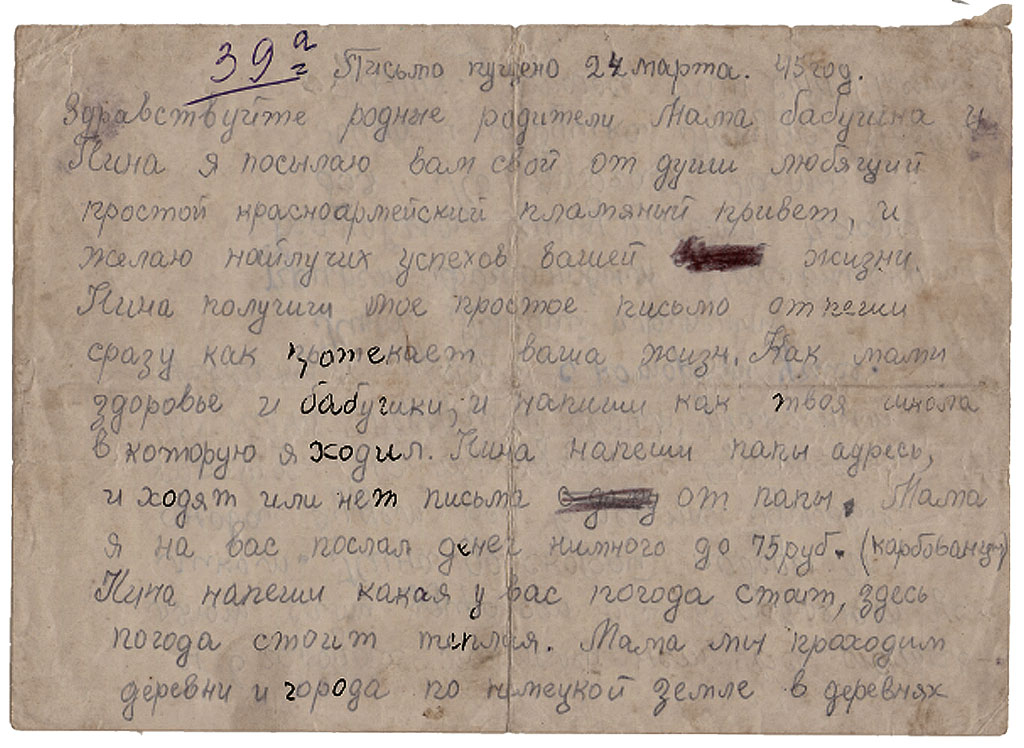 39а Письмо пущено 24 марта. 45 год.
Здравствуйте родные родители Мама бабушка и
Нина я посылаю вам свой от души любящий
простой красноармейский пламяный привет, и
желаю найлучих успехов вашей жизни
Нина получиш мое простое письмо отпеши
сразу как протекает ваша жизн. Как мами
здоровье и бабушки, и напиши как твоя школа
в которую я ходил. Нина напеши папы адресь,
и ходят или нет письма от папы. Мама
я на вас послал денег нимного до 75 руб. (карбованцы)
Нина напеши какая у вас погода стоит, здесь
погода стоит теплая. Мама мы проходим
деревни и города по немецкой земле в деревнях